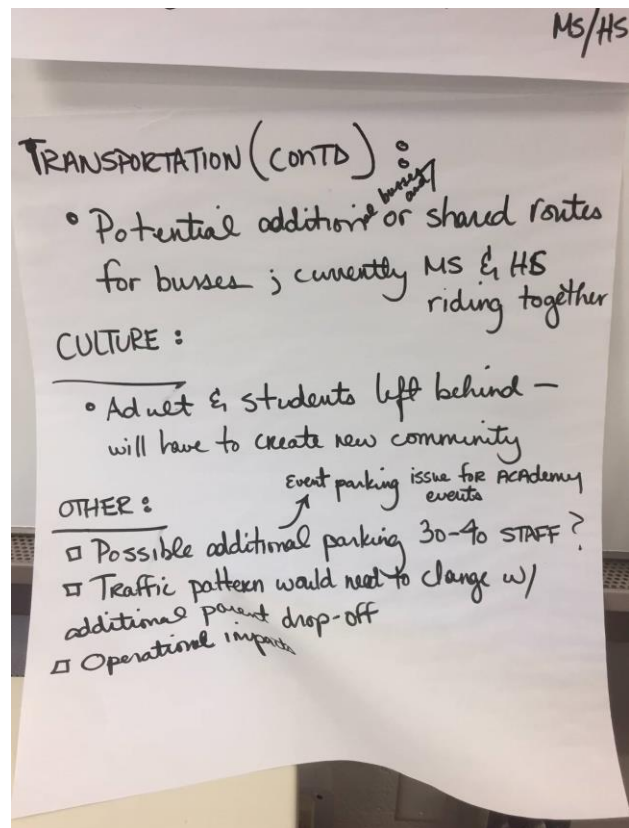 MS/HS
TRANSPORTATION (CONTD) :
busses
and/
• Potential additional or shared routes
for busses ; currently MS & HS
riding together
CULTURE :
• Adult & students left behind —
will have to create new community
Event parking issue for ACAdemy
events
OTHER :
□ Possible additional parking 30-40 STAFF ?
□ Traffic pattern would need to change w/
additional parent drop-off
□ Operational impacts